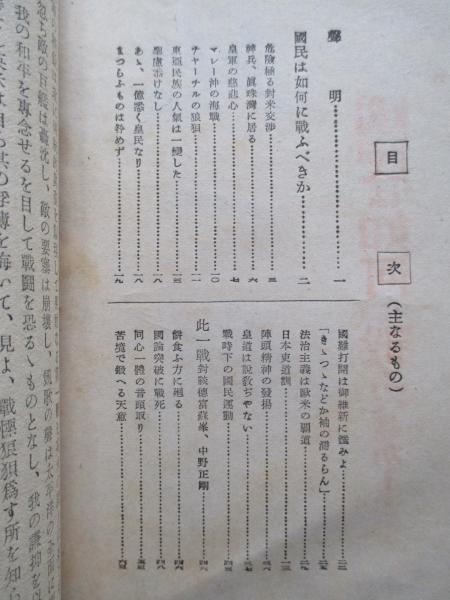 目次（主なるもの）
聲明………一
國民は如何に戰ふべきか………二
危險極る對米交渉………三
神兵、眞珠灣に居る………六
皇軍の慈悲心………七
マレー沖の海戰………一〇
チャーチルの狼狽………一一
東亞民族の人氣は一變した………一三
聖慮畏けなし………一八
あゝ、一億悉く皇民なり………一八
まつらふものは矜めず………一九
國難打開は御維新に鑑みよ………二二
「きゝつゝなどか袖の濡るらん」………二三
法治主義は歐米の覇道………二九
日本吏道訓………
陣頭精神の發揚………
皇道は說敎ぢやない………
戰時下の國民運動………
此一戰 對談 德富蘇峯、中野正剛………四六
餅食ふ方に廻る………四六
國論突破に戰死………四八
同心一體の音頭取り………
苦境で鍛へる天意………六三
敵の巨艦は轟沈し、敵の要塞は崩壞し、凱歌の聲は太平洋の全面に
我の和平を專念せるを目して戰鬪を恐るゝものとなし、我の謙抑を以
を悔いて、見よ、戰慄狼狽爲す所を知ら